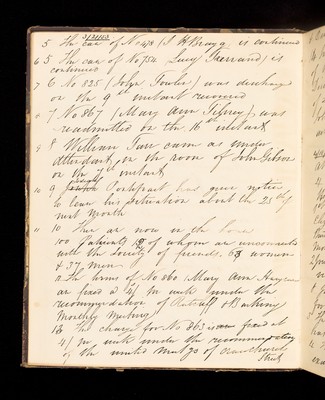 5 The case of No 478 (S H Bragg is continued
6 5 The case of No 750 Lucy Fternand) is
continued
7 6 No 825 (John Fowler) was discharged
on the 9th instant recovered
7 No 867 (Mary Ann Tifney) was
readmitted on the 16th instant
9 8 William came as under
attendant in the room of John Gibson
on the instant
10 9 Joseph Pontefract has given notice
to leave his situation about the 25th of
next Month
11 10 There are now in the house
100 Patients of whom are unconnected
with the Society of friends, 63 women
& 37 men
12 The terms of No 860 (Mary Ann
are fixed at 4/ pr week under the
recommendation of Ratcliff & Barking
Monthly Meeting
13 The charge for No 863 is fixed at
4/ pr week under the recommendation
of the united Mtg of Gracechurch
Street